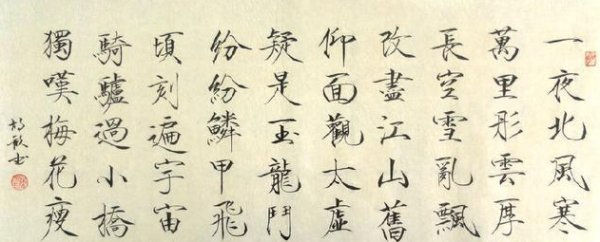 一夜北風寒
萬里彤雲厚
長空雪亂飄
改盡江山舊
仰面觀太虛
疑是玉龍鬥
紛紛鱗甲飛
頃刻遍宇宙
騎驢過小橋
獨嘆梅花瘦